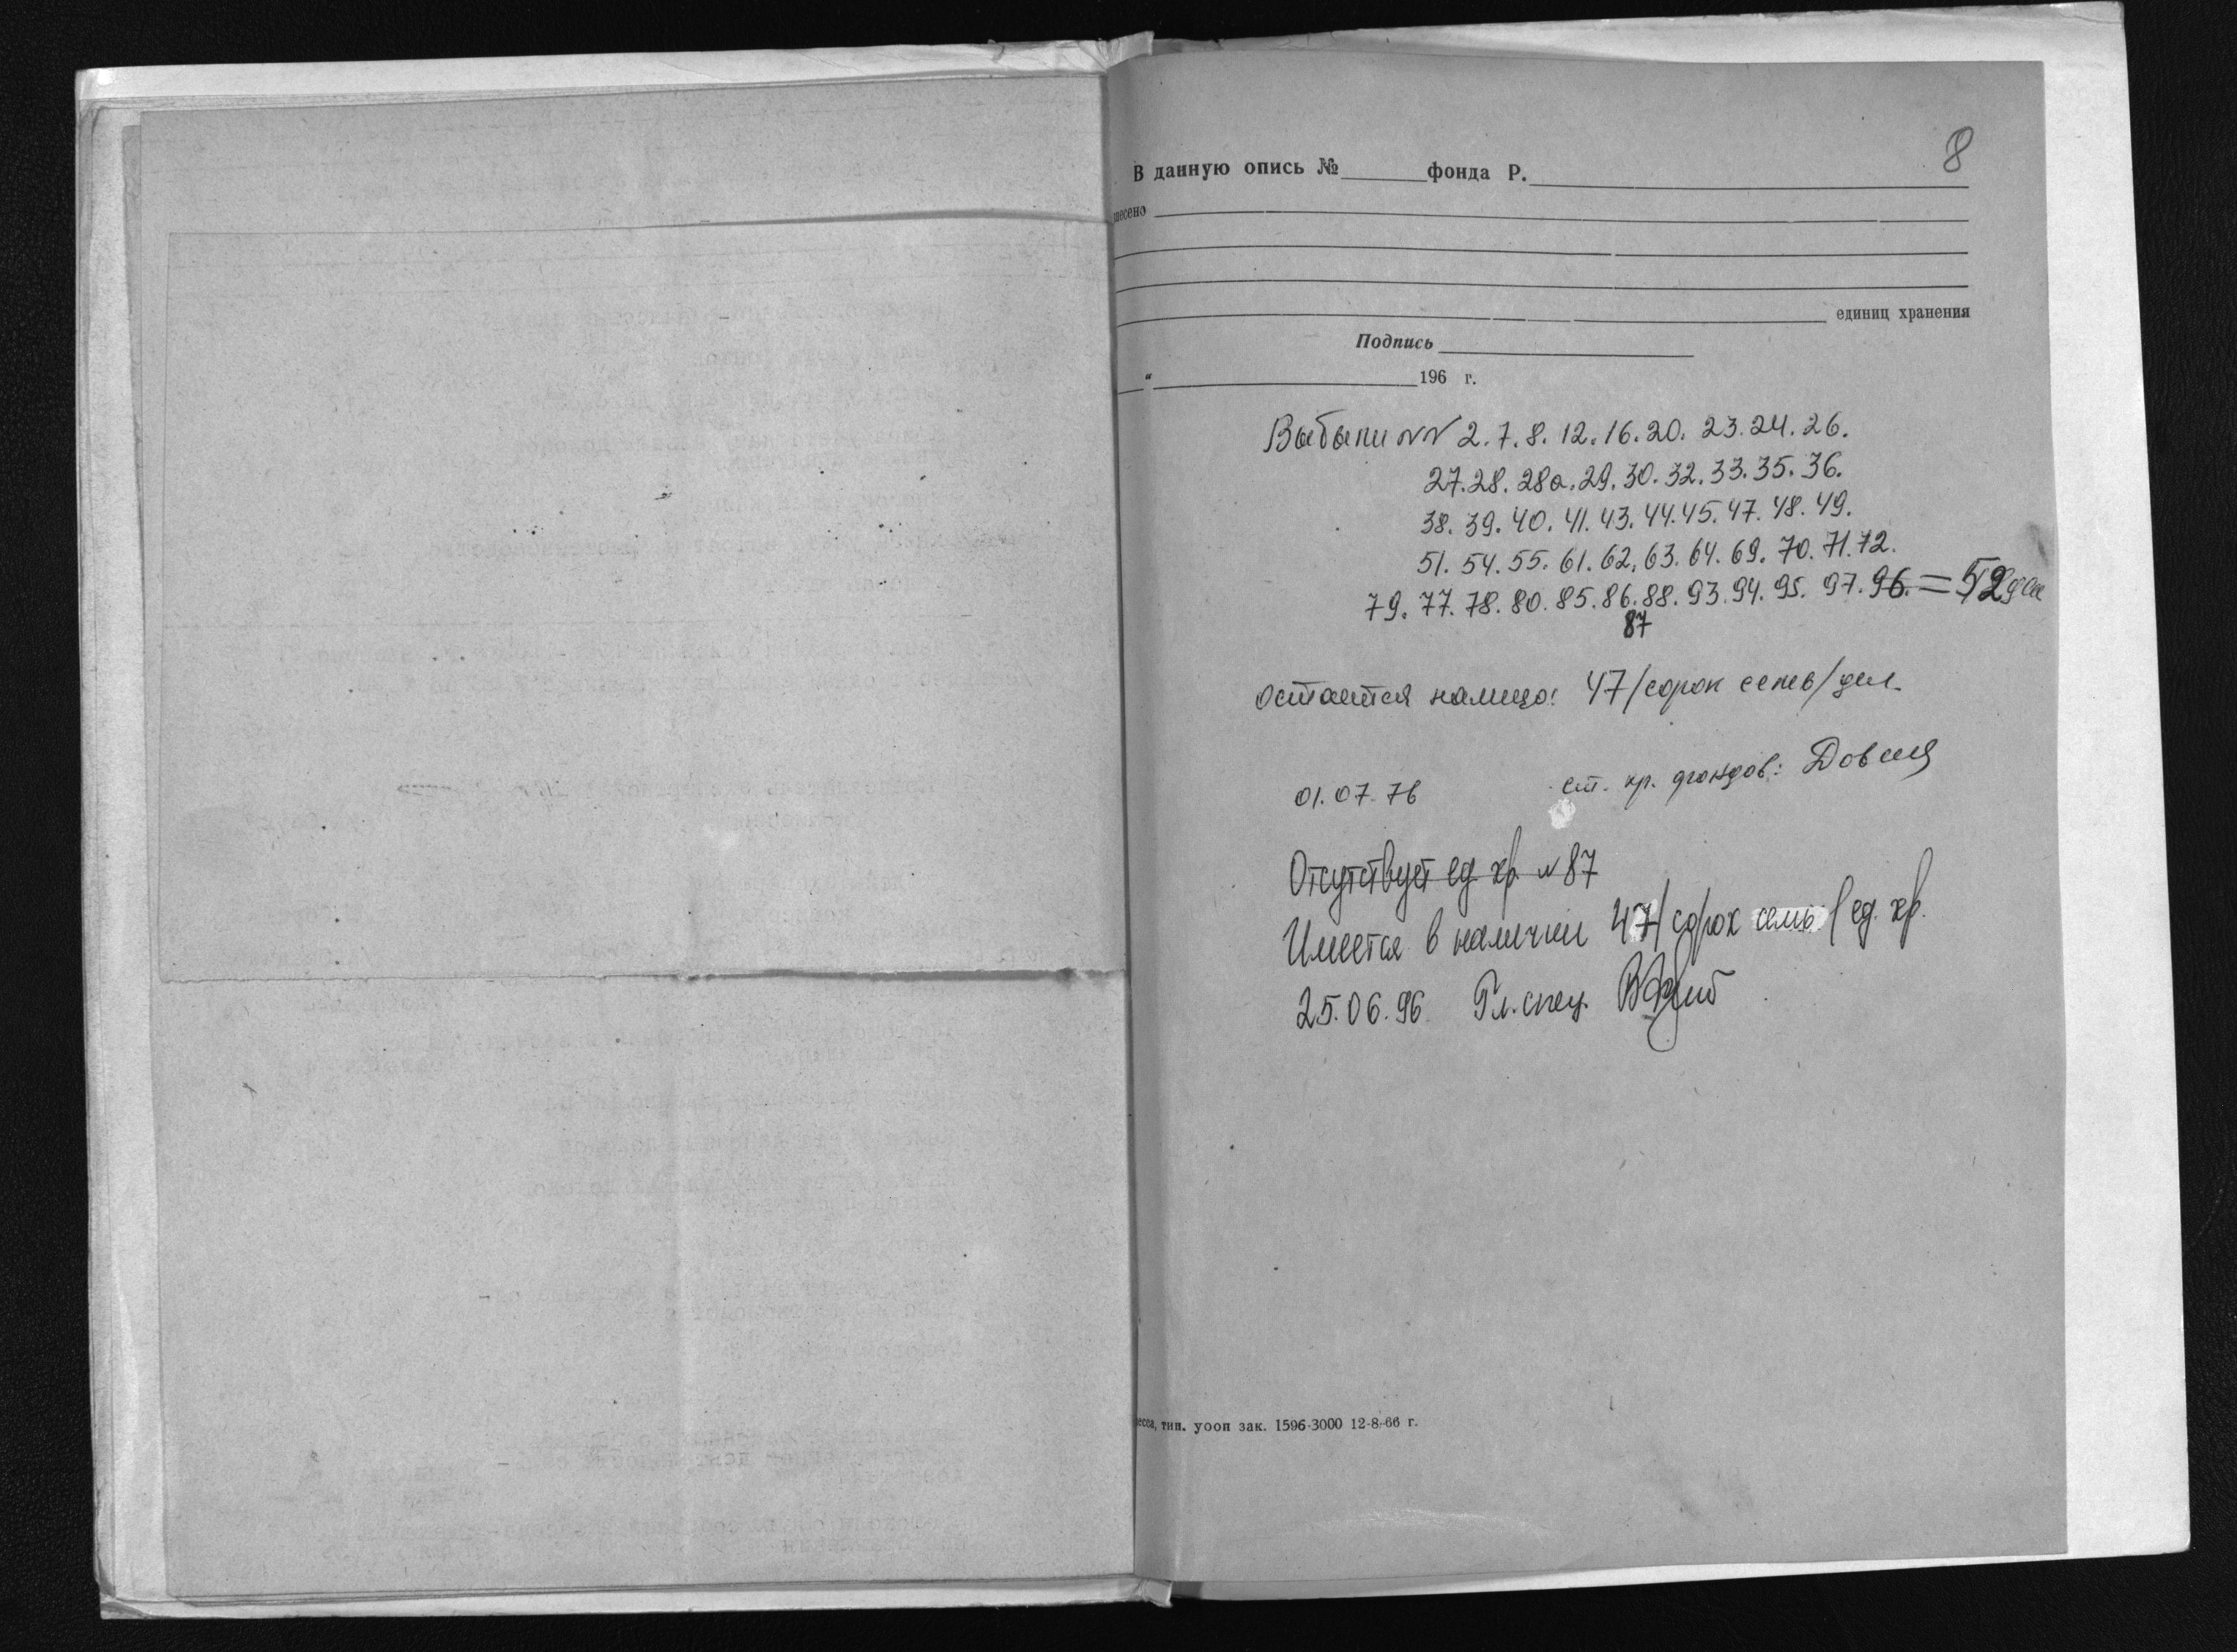 8
В данную опись № фонда Р.
несено
единиц хранения
Подпись
" 196 г.
Выбыли NN 2.7.8.12.16.20.23.24.26.
27.28.28а.29.30.32.33.35.36.
38.39.40.41.43.44.45.47.48.49.
51.54.55.61.62.63.64.69.70.71.72.
79.77.78.80.85.86.88.93.94.95.97.96.=52
87
остается налицо: 47/сорок семь/дел.
01.07.76 ст. хр. фондов:
Отсутствует ед. хр. N 87
Имеется в наличии 47/сорок семь/ед. хр.
25.06.96 Гл. спец.
есса, тип. уооп зак. 1596-3000 12-8-66 г.